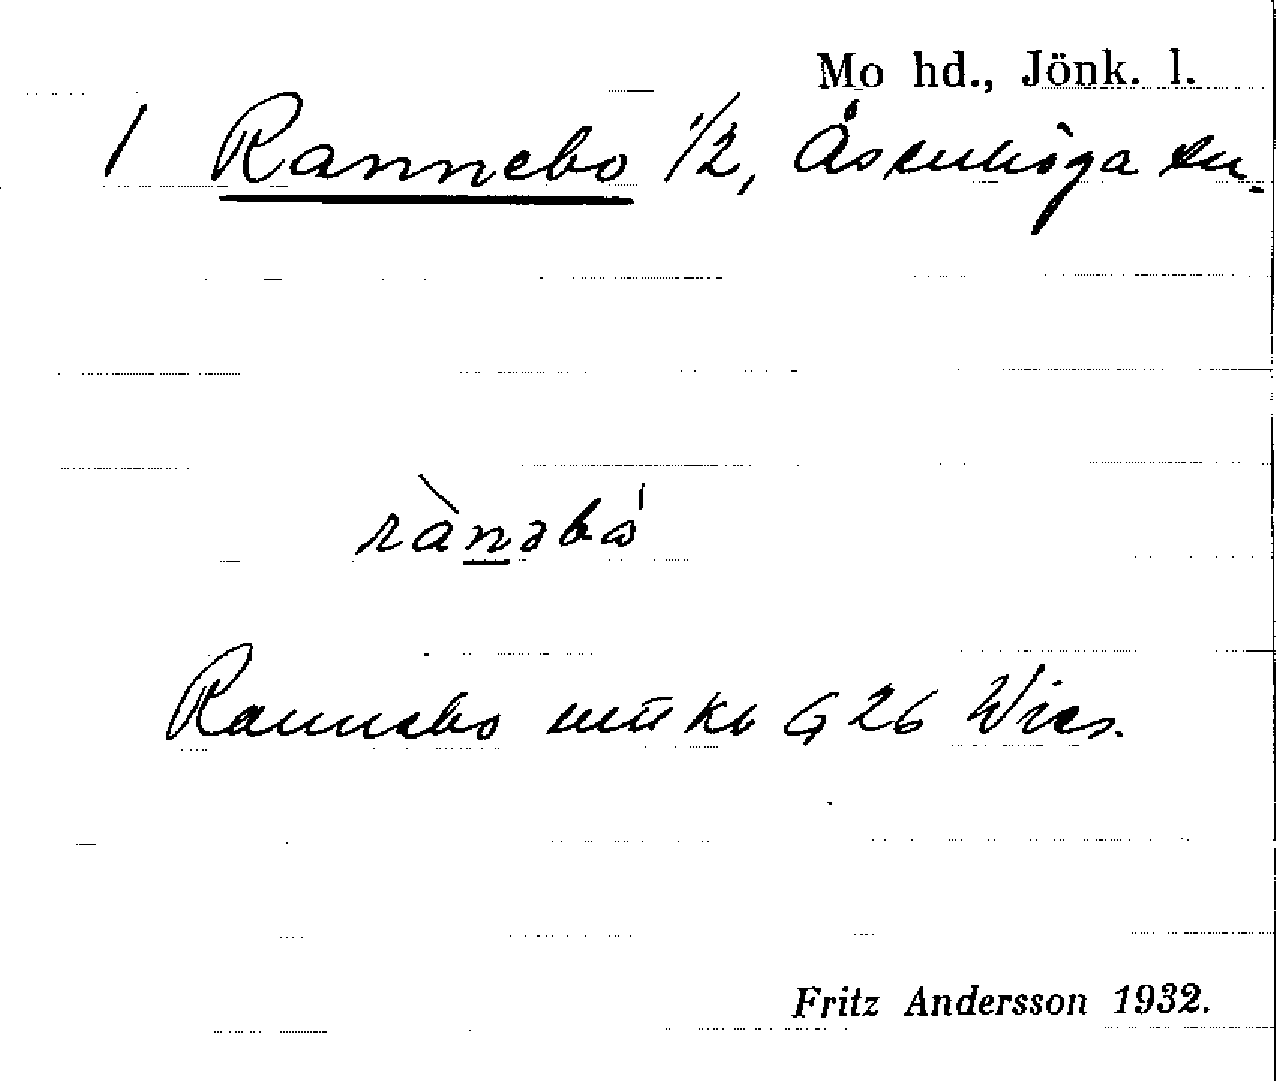 Mo hd., Jönk. l.
1 Rannebo 1/2, Åsenhöga sn.
rànəbó
Rannebo G 26 Wies.
Fritz Andersson 1932.